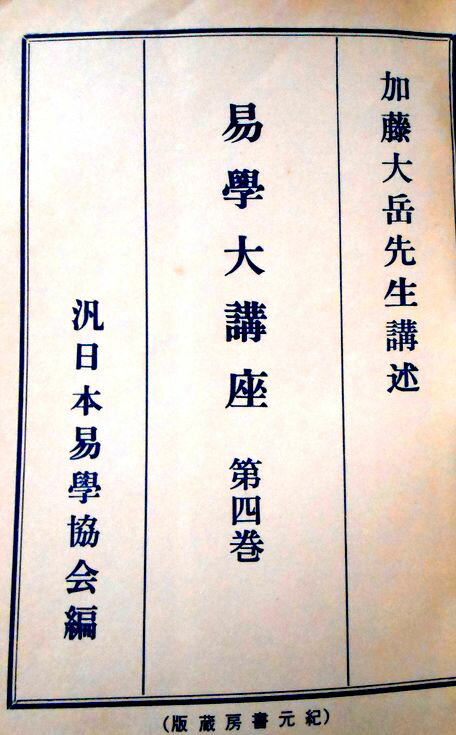 加藤大岳先生講述
易學大講座 第四巻
汎日本易學協会編
(紀元書房蔵版)